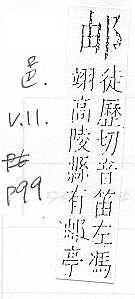 邮
徒歷切音笛左馮
翊高陵縣有邮亭
邑.
V.11.
P99